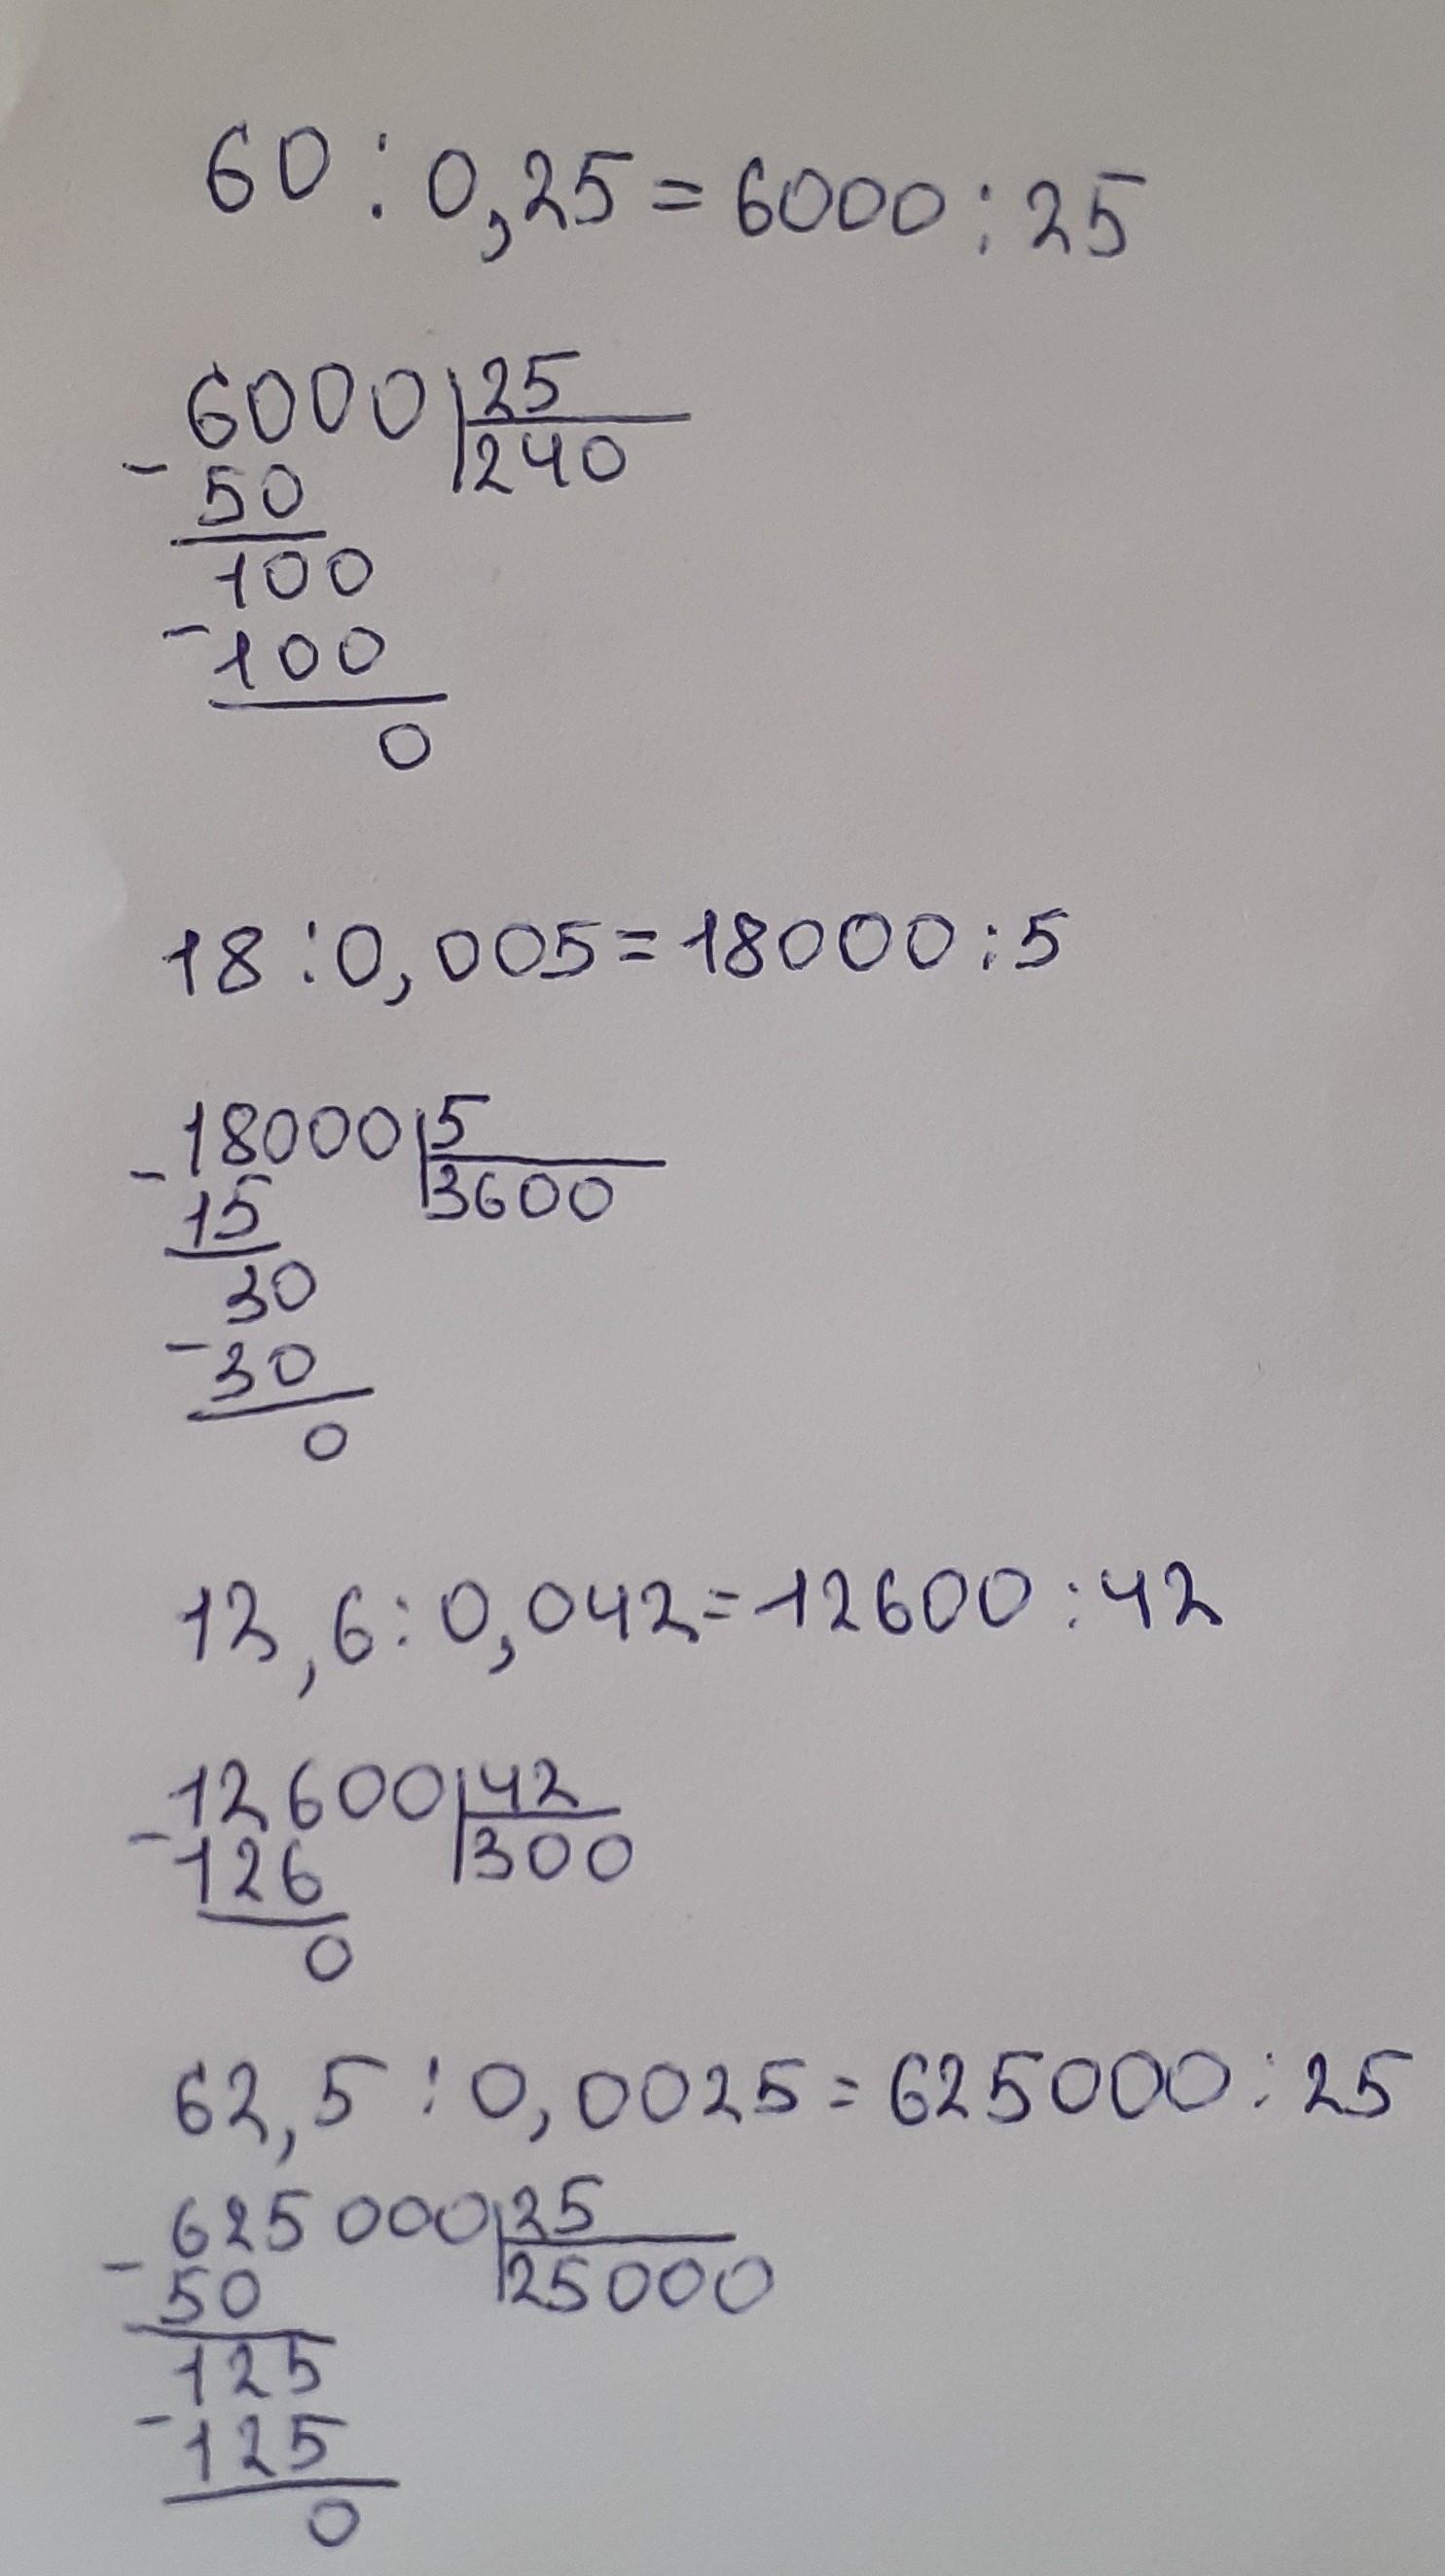 60 : 0,25 = 6000 : 25
6000 | 25
- 50 | 240
100
- 100
0
18 : 0,005 = 18000 : 5
18000 | 5
- 15 | 3600
30
- 30
0
12,6 : 0,042 = 12600 : 42
12600 | 42
- 126 | 300
0
62,5 : 0,0025 = 625000 : 25
625000 | 25
- 50 | 25000
125
- 125
0